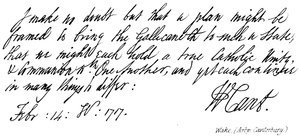 I make no doubt but that a plan might be
framed to bring the Gallican Ch to such a State,
that we might each hold a true Catholic Unity,
& Communion with One Another, and yet each continue
in many things to differ:
Febr: 14: 1717.
W Cant.
Wake (Archp. Canterbury)